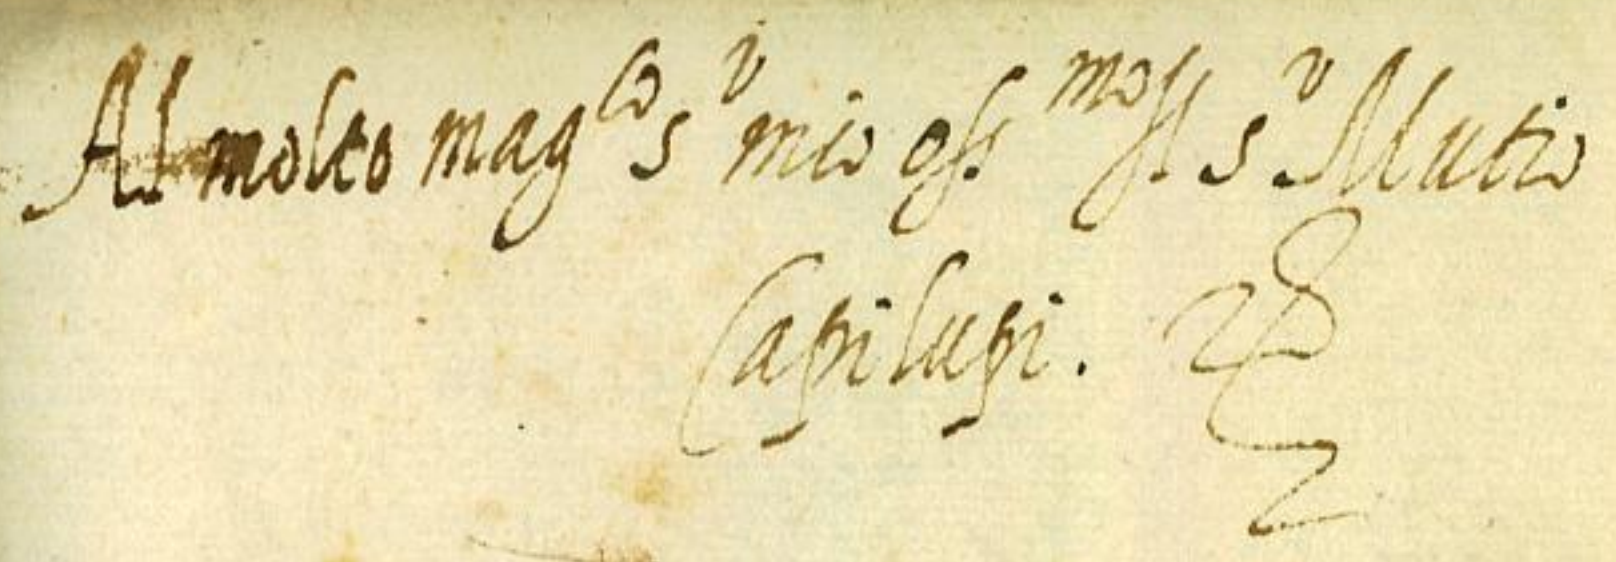 Al molto mag.co s.r mio oss.mo il s.r Mutio
Capilupi.